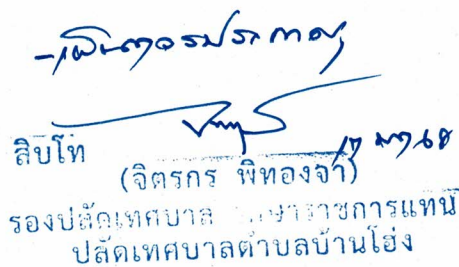 - เห็นควรประกาศ
สิบโท
(จิตรกร พิทองจำ)
รองปลัดเทศบาล รักษาราชการแทน
ปลัดเทศบาลตำบลบ้านโฮ่ง